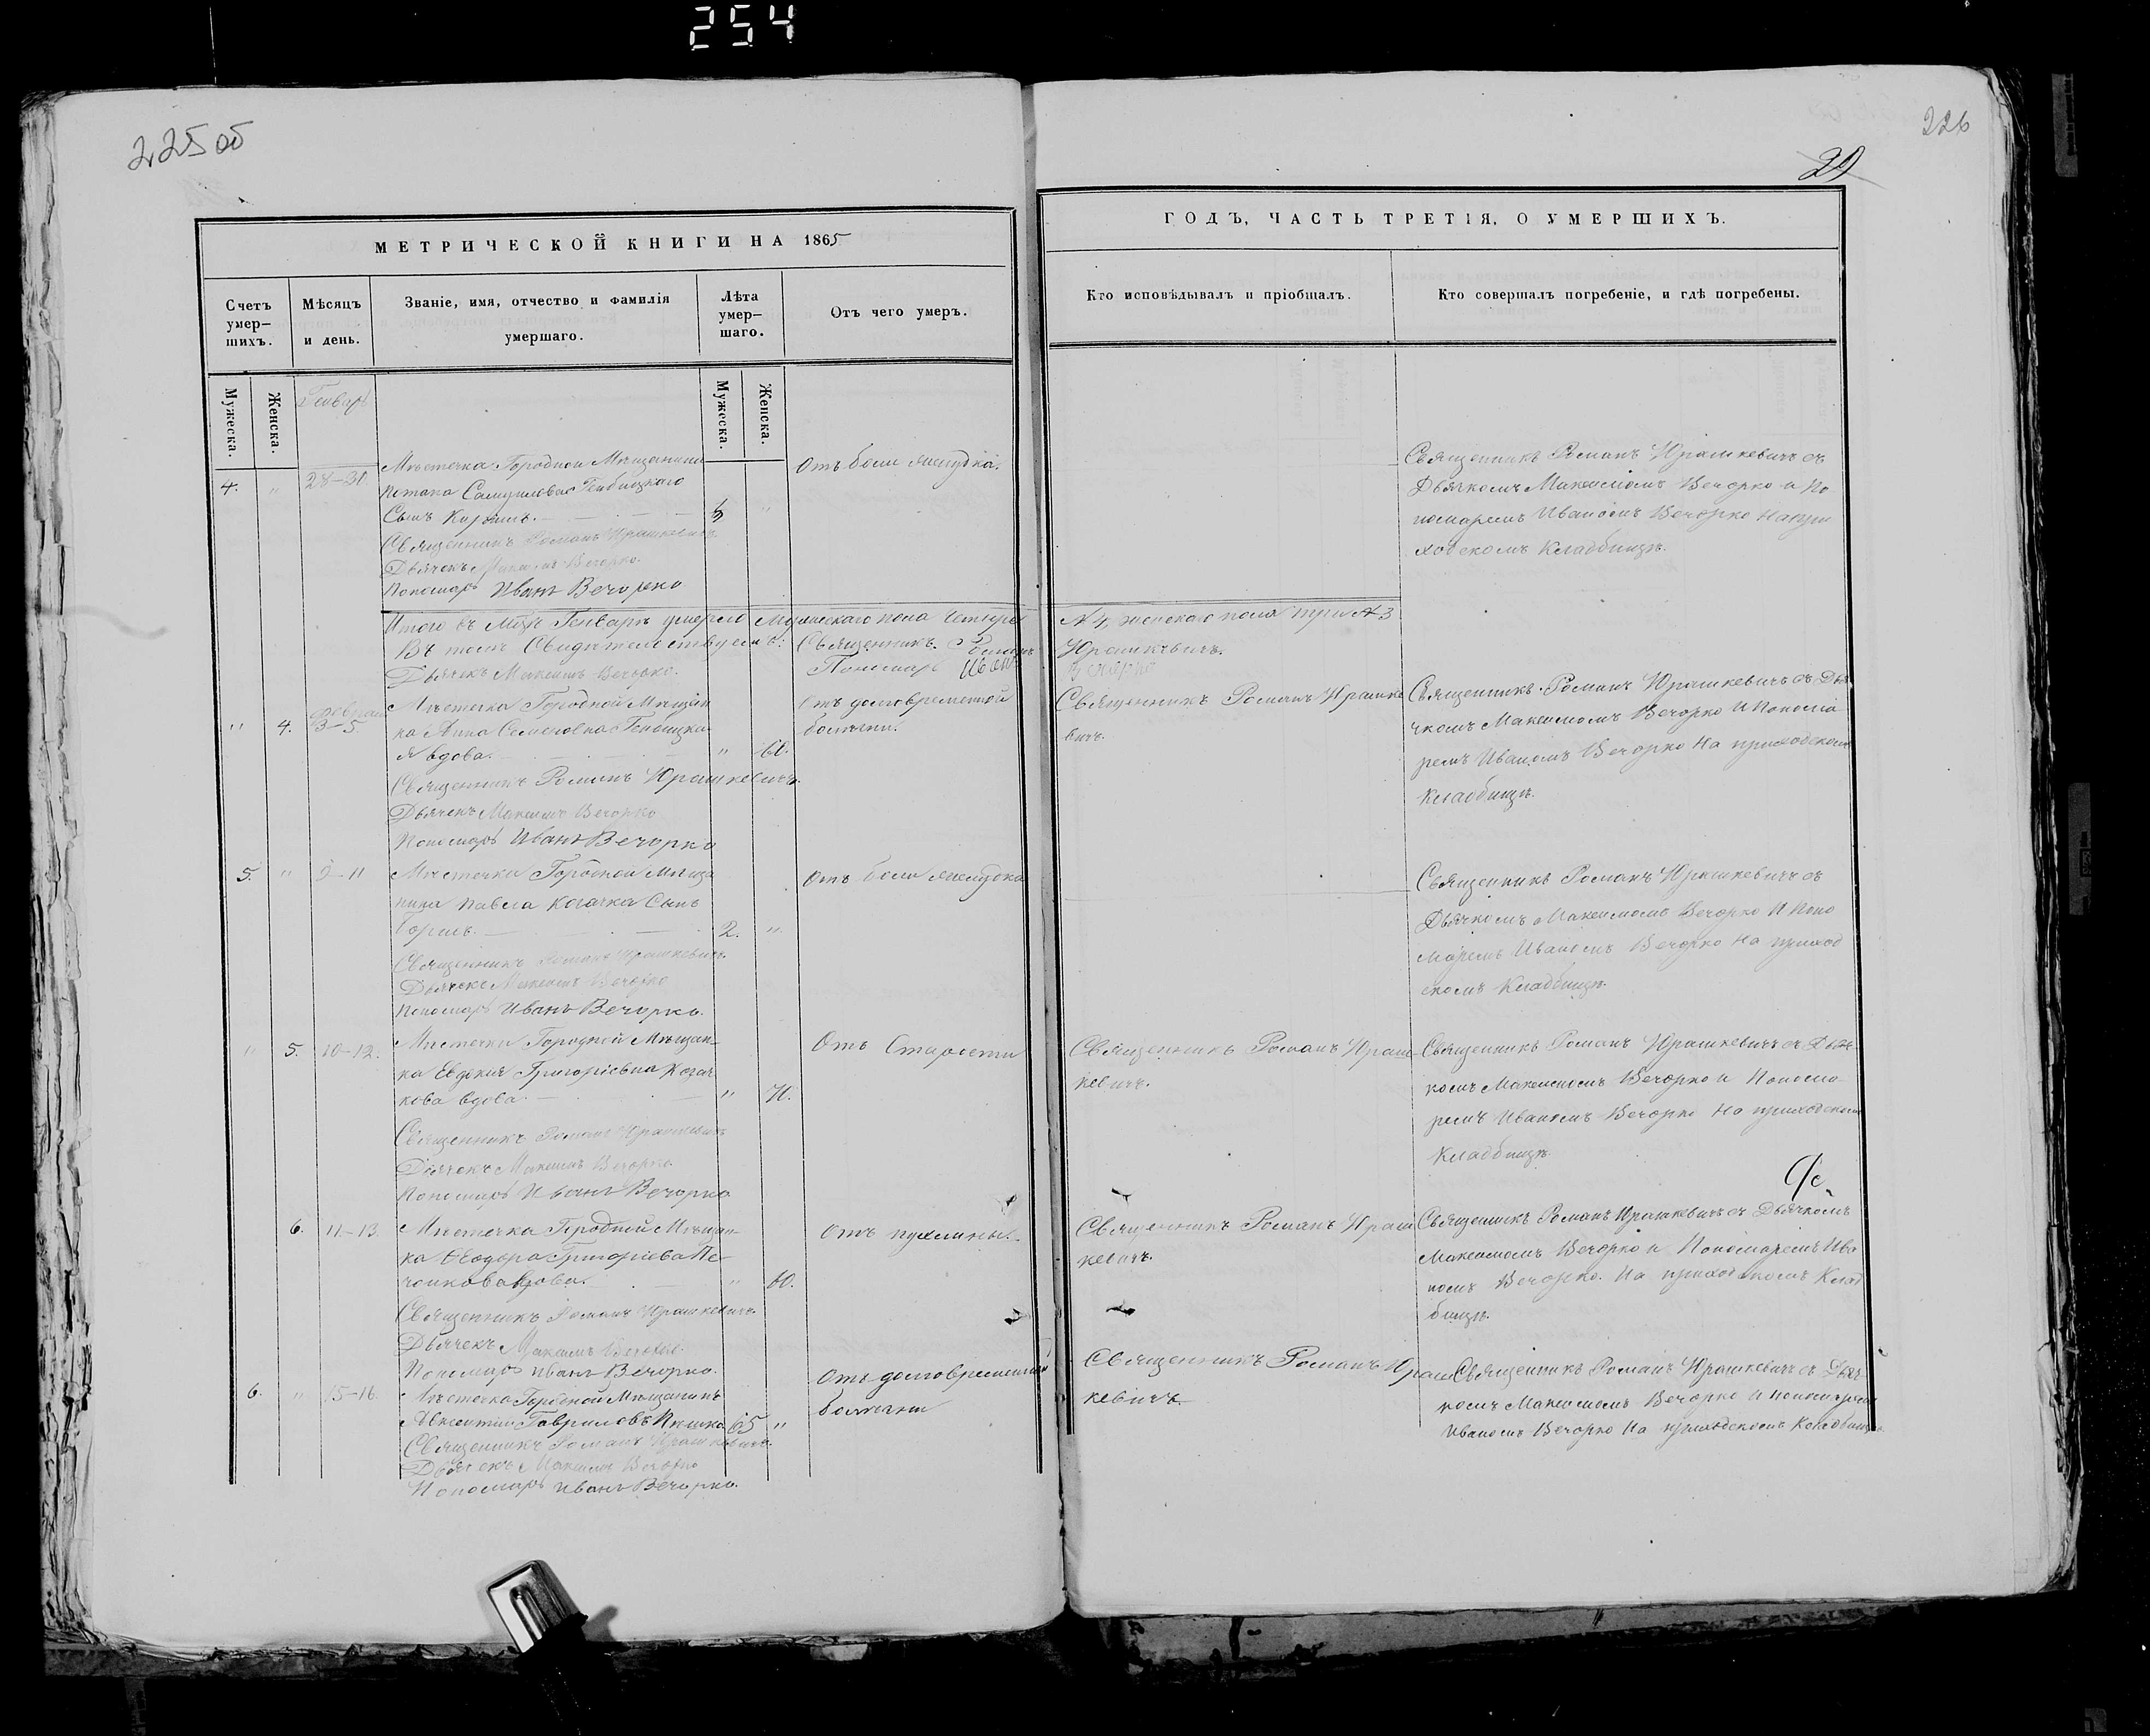 254
225 об
226
29
МЕТРИЧЕСКОЙ КНИГИ НА 1865
ГОДЪ, ЧАСТЬ ТРЕТІЯ, О УМЕРШИХЪ.
Счетъ умер-
шихъ.
Мѣсяцъ
и день.
Званіе, имя, отчество и фамилія
умершаго.
Лѣта
умер-
шаго.
Отъ чего умеръ.
Кто исповѣдывалъ и пріобщалъ.
Кто совершалъ погребеніе, и гдѣ погребены.
Мужеска.
Женска.
Генварь
Мужеска.
Женска.
4. " 28-31
Мѣстечка Городной Мѣщанина
Сынъ
Священникъ Романъ Юрашкевичъ
Дьячекъ Максимъ Вечорко.
Пономарь Иванъ Вечорко
Отъ боли желудка.
Священникъ Романъ Юрашкевичъ съ
Дьячкомъ Максимомъ Вечорко и По
номаремъ Иваномъ Вечорко На при
ходскомъ Кладбищѣ.
Итого въ Генварѣ умерло мужескаго пола четыре
№ 4, женскаго пола три № 3
Въ томъ Свидѣтельствуемъ: Священникъ Романъ
Юрашкевичъ.
Дьячекъ Максимъ Вечорко.
Пономарь Иванъ
Вечорко
" 4. Февраль
3-5
Мѣстечка Городной Мѣщан
ка Анна Семеновна
я вдова. " 60.
Священникъ Романъ Юрашкевичъ.
Дьячекъ Максимъ Вечорко
Пономарь Иванъ Вечорко
Отъ долговременной
болѣзни.
Священникъ Романъ Юрашке
вичъ.
Священникъ Романъ Юрашкевичъ съ Дья
чкомъ Максимомъ Вечорко И Понома
ремъ Иваномъ Вечорко На приходскомъ
Кладбищѣ.
5. " 9-11
Мѣстечка Городной Мѣща
нина Павла Козачка Сынъ
Борисъ. 2. "
Священникъ Романъ Юрашкевичъ.
Дьячекъ Максимъ Вечорко
Пономарь Иванъ Вечорко.
Отъ боли желудка
Священникъ Романъ Юрашкевичъ съ
Дьячкомъ Максимомъ Вечорко И Поно
маремъ Иваномъ Вечорко На приход
скомъ Кладбищѣ.
" 5. 10-12.
Мѣстечка Городной Мѣщан-
ка Евдокія Григоріевна Козач
кова вдова. "
Священникъ Романъ Юрашкевичъ
Дьячекъ Максимъ Вечорко.
Пономарь Иванъ Вечорко
Отъ Старости
Священникъ Романъ Юраш
кевичъ.
Священникъ Романъ Юрашкевичъ съ Дьяч
комъ Максимомъ Вечорко и Понома-
ремъ Иваномъ Вечорко На приходскомъ
Кладбищѣ.
6. 11-13.
Мѣстечка Городной Мѣщан-
ка Ѳеодора Григоріева
вдова. " 60.
Священникъ Романъ Юрашкевичъ.
Дьячекъ Максимъ Вечорко.
Пономарь Иванъ Вечорко.
Отъ пухлины.
Священникъ Романъ Юраш
кевичъ.
Священникъ Романъ Юрашкевичъ съ Дьячкомъ
Максимомъ Вечорко и Пономаремъ Ива
номъ Вечорко. На приходскомъ Клад
бищѣ.
6. " 15-16
Мѣстечка Городной Мѣщанинъ
Авксентій Гавриловъ 65 "
Священникъ Романъ Юрашкевичъ.
Дьячекъ Максимъ Вечорко
Пономарь Иванъ Вечорко.
Отъ долговременной
болѣзни
Священникъ Романъ Юраш
кевичъ.
Священникъ Романъ Юрашкевичъ съ Дьяч
комъ Максимомъ Вечорко и пономаремъ
Иваномъ Вечорко На приходскомъ Кладбищѣ.